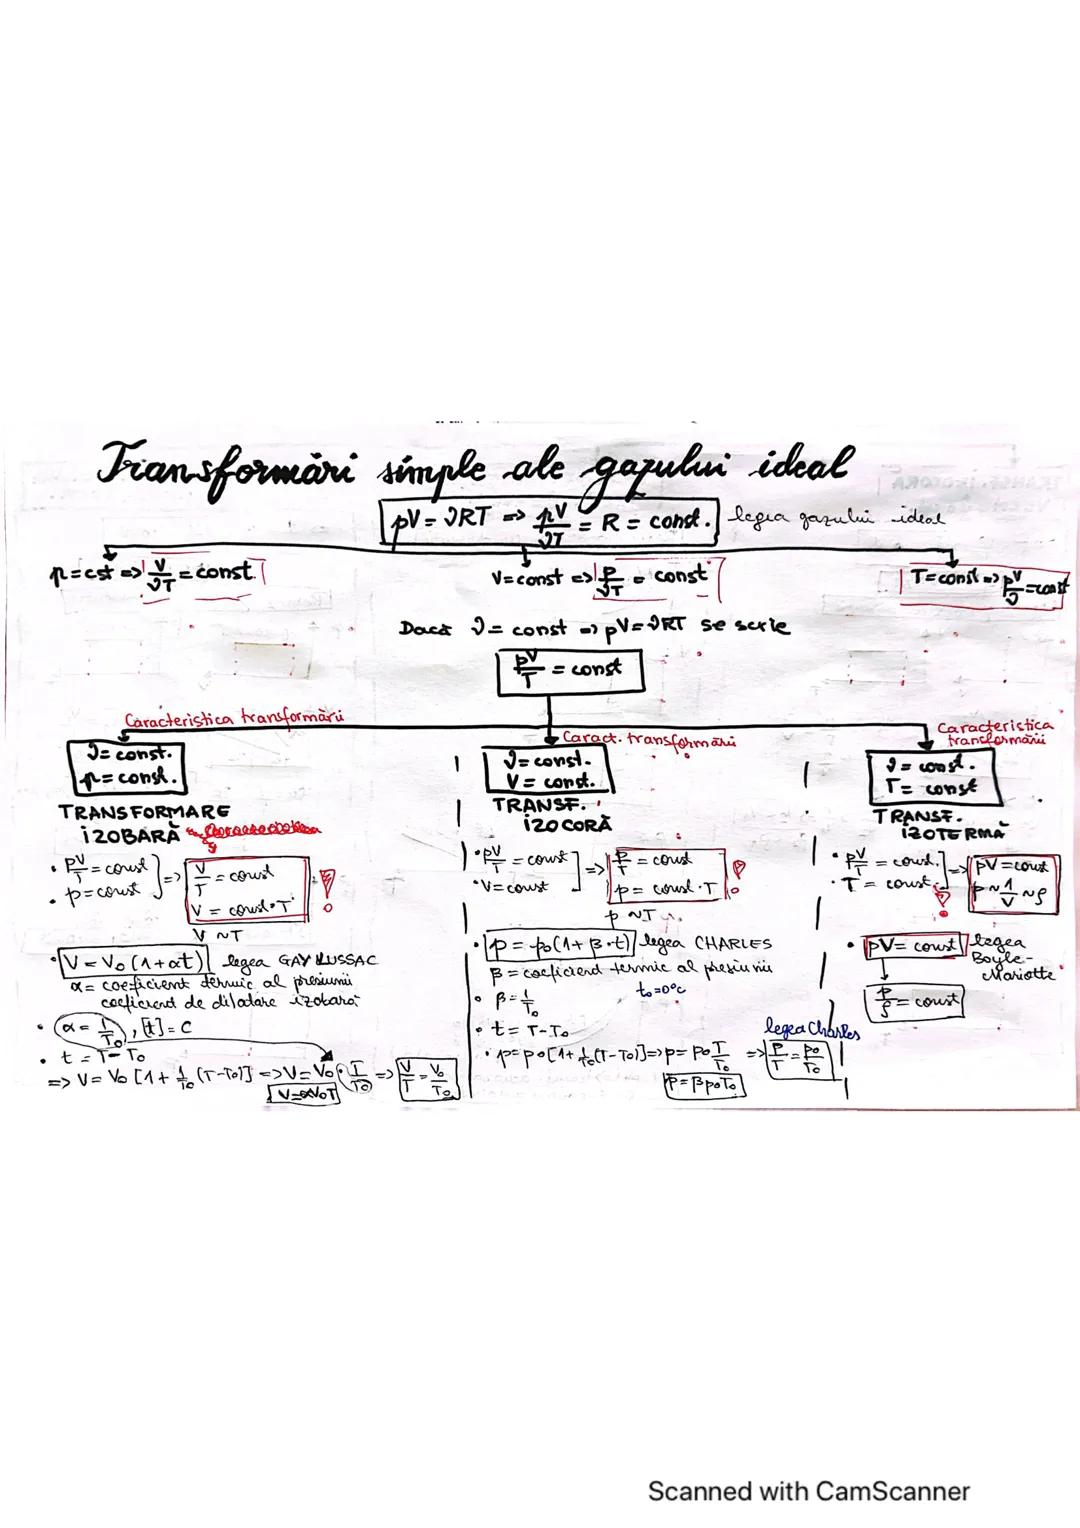 Transformări simple ale gazului ideal
pV = νRT => pV/νT = R = const. legea gazului ideal
p=cst => V/νT = const.
V=const => p/νT = const
T=const => pV/ν = const
Dacă ν = const => pV=νRT se scrie
pV/T = const
Caracteristica transformării
ν = const.
p = const.
TRANSFORMARE
IZOBARĂ
• pV/T = const
• p = const
=> V/T = const
V = const·T
V ~ T
• V = V₀(1+αt) legea GAY LUSSAC
α = coeficient termic al presiunii
coeficient de dilatare izobară
• α = 1/T₀, [t] = C
• t = T - T₀
=> V = V₀ [1 + 1/T₀ (T-T₀)] => V = V₀ · T/T₀ => V/T = V₀/T₀
V=αV₀T
Caract. transformării
ν = const.
V = const.
TRANSF.
IZOCORĂ
• pV/T = const
• V = const
=> p/T = const
p = const·T
p ~ T
• p = p₀(1 + β·t) legea CHARLES
β = coeficient termic al presiunii
• β = 1/T₀ t₀=0°C
• t = T-T₀
• p = p₀[1 + 1/T₀(T-T₀)] => p = p₀ T/T₀ => p/T = p₀/T₀
legea Charles
p=βp₀T₀
Caracteristica
transformării
ν = const.
T = const
TRANSF.
IZOTERMĂ
• pV/T = const.
• T = const.
=> pV = const
p ~ 1/V ~ ρ
• pV = const legea
Boyle-
Mariotte
p/ρ = const
Scanned with CamScanner